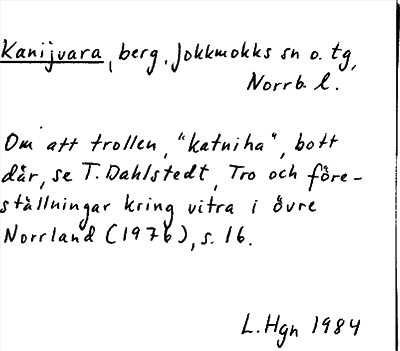 Kanijvara, berg, Jokkmokks sn o. tg,
Norrb. l.
Om att trollen, "katniha", bott
där, se T. Dahlstedt, Tro och före-
ställningar kring vitra i övre
Norrland (1976), s. 16.
L. Hgn 1984